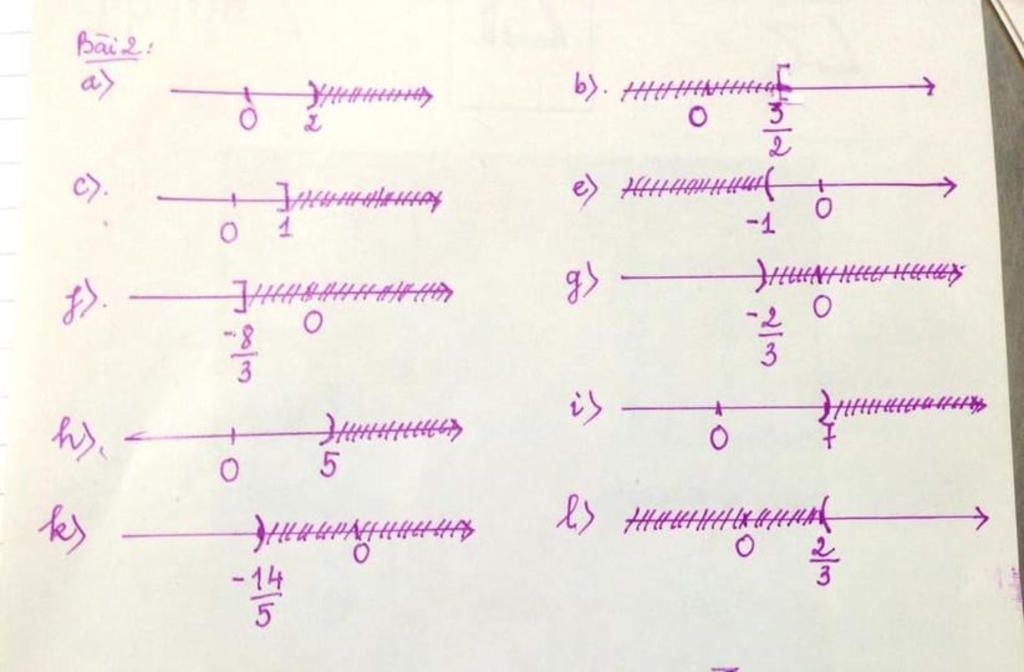 Bài 2:
a) 0 2
b). 0 3/2
c). 0 1
e) -1 0
f). -8/3 0
g) -2/3 0
h). 0 5
i) 0 7
k) -14/5 0
l) 0 2/3